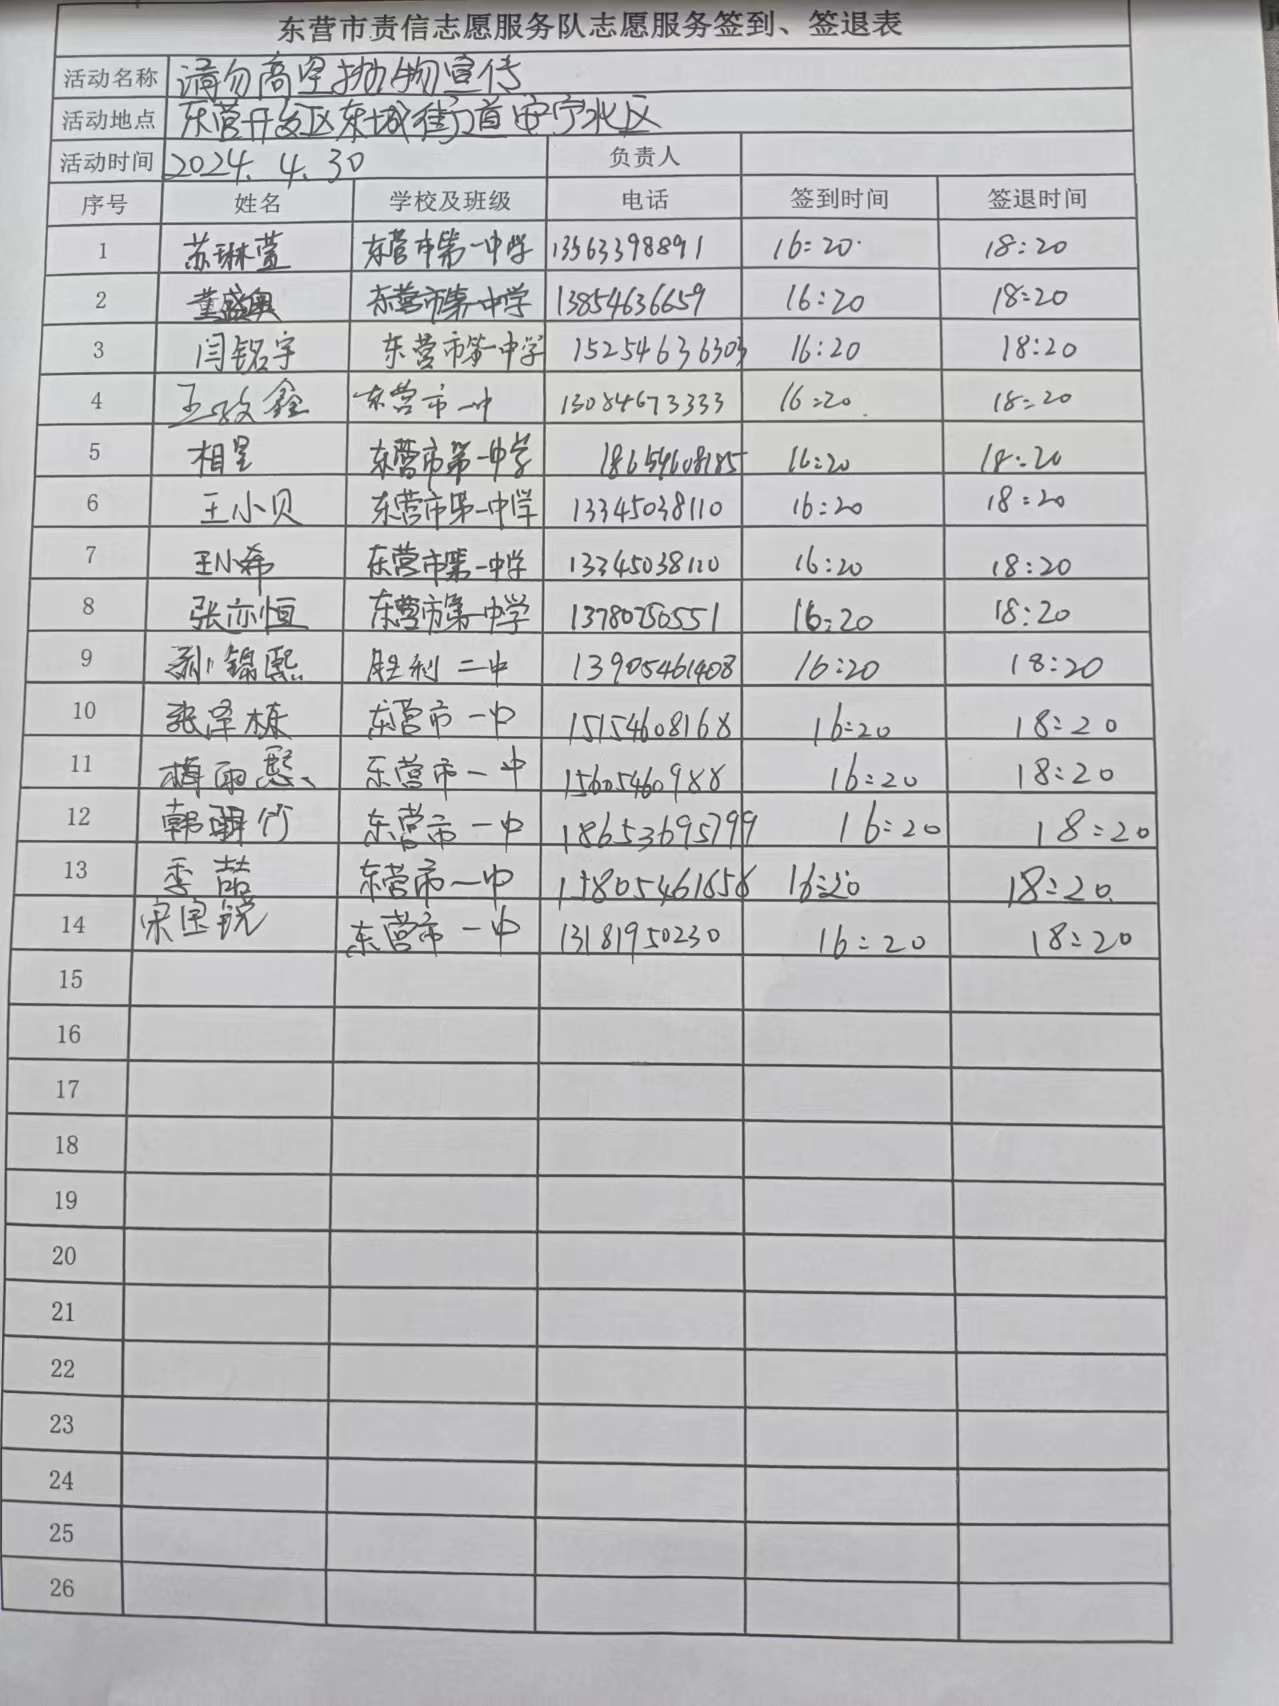 东营市责信志愿服务队志愿服务签到、签退表
活动名称 请勿高空抛物宣传
活动地点 东营开发区东城街道安宁北区
活动时间 2024.4.30 负责人
序号 姓名 学校及班级 电话 签到时间 签退时间
1 苏琳萱 东营市第一中学 13563398891 16:20 18:20
2 董盛奥 东营市第一中学 13854636659 16:20 18:20
3 闫铭宇 东营市第一中学 15254636303 16:20 18:20
4 王政鑫 东营市一中 13084673333 16:20 18:20
5 相呈 东营市第一中学 18654608185 16:20 18:20
6 王小贝 东营市第一中学 13345038110 16:20 18:20
7 王小希 东营市第一中学 13345038110 16:20 18:20
8 张亦恒 东营市第一中学 13780750551 16:20 18:20
9 锦熙 胜利二中 13905461408 16:20 18:20
10 张泽栋 东营市一中 15154608168 16:20 18:20
11 梅雨 东营市一中 15605460988 16:20 18:20
12 韩翡竹 东营市一中 18653695799 16:20 18:20
13 季喆 东营市一中 16:20 18:20
14 宋宝锐 东营市一中 13181950230 16:20 18:20
15
16
17
18
19
20
21
22
23
24
25
26